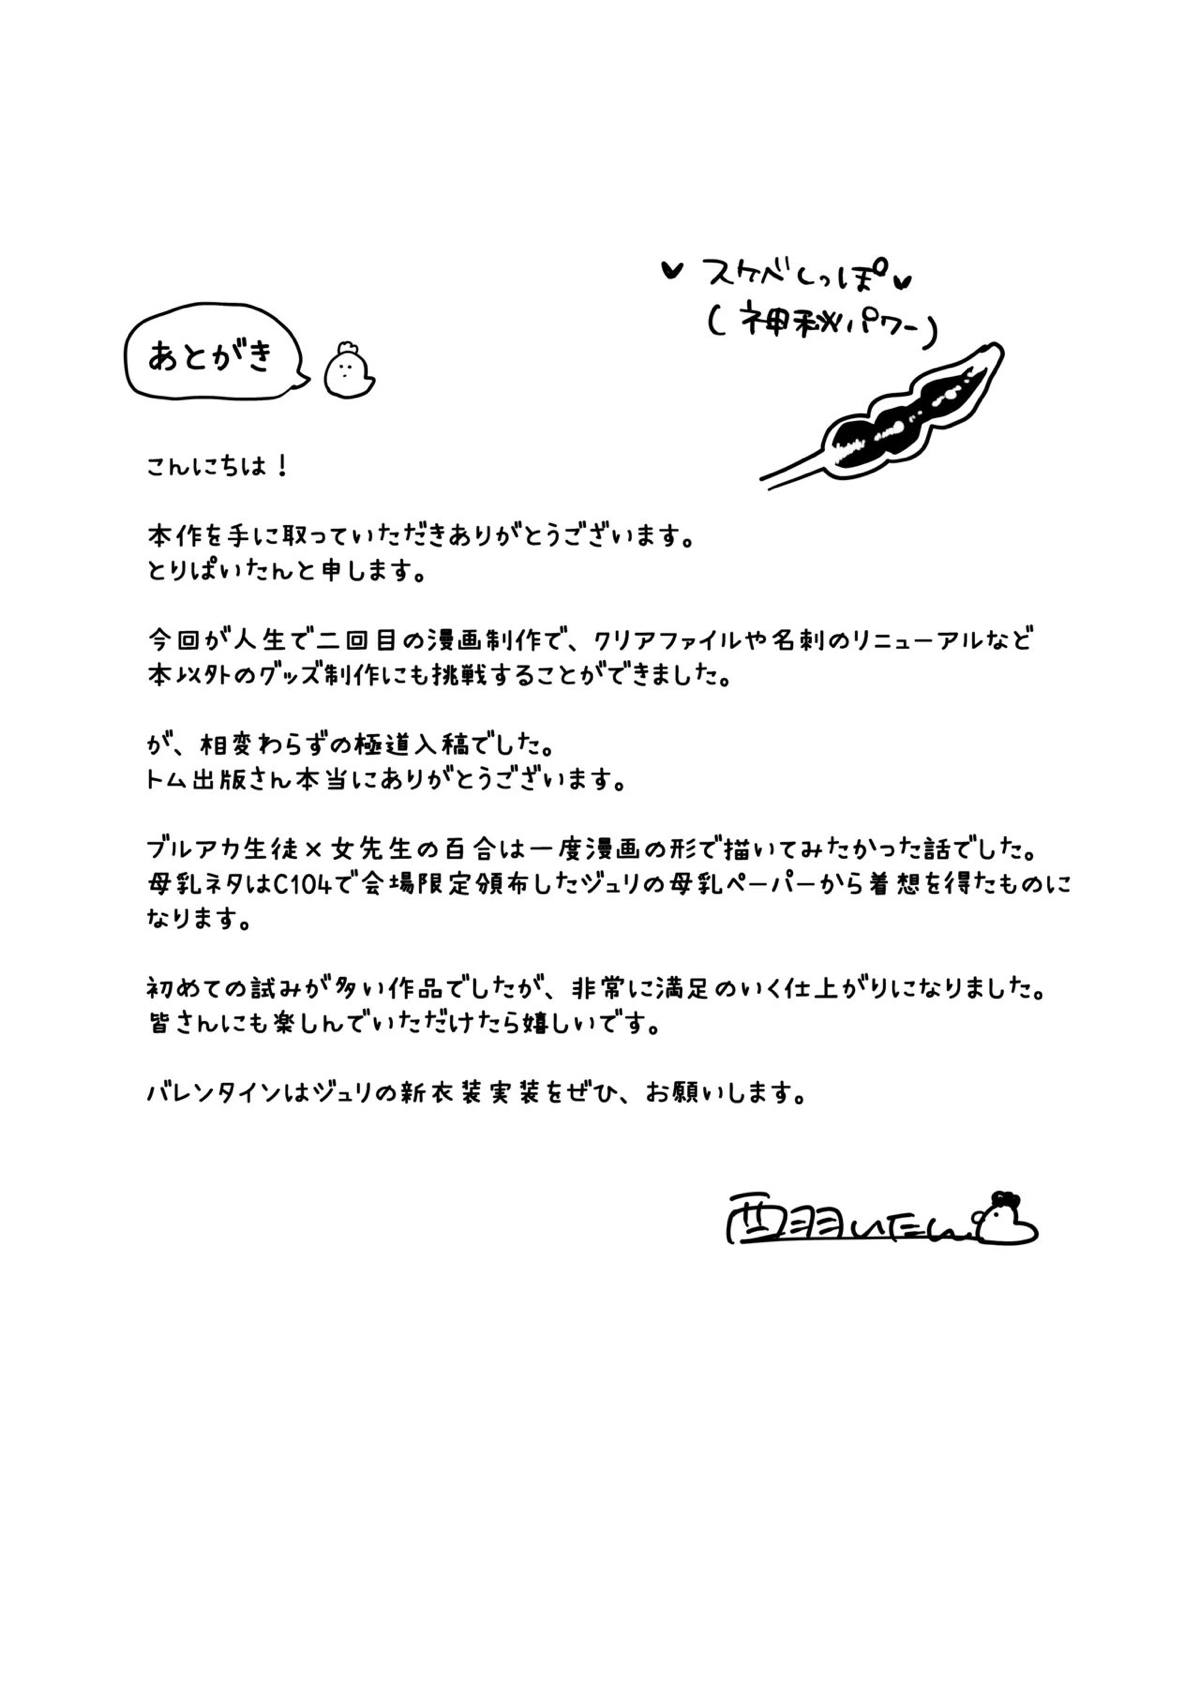 ♥ スケベしっぽ ♥
(神秘パワー)
あとがき
こんにちは！
本作を手に取っていただきありがとうございます。
とりぱいたんと申します。
今回が人生で二回目の漫画制作で、クリアファイルや名刺のリニューアルなど
本以外のグッズ制作にも挑戦することができました。
が、相変わらずの極道入稿でした。
トム出版さん本当にありがとうございます。
ブルアカ生徒×女先生の百合は一度漫画の形で描いてみたかった話でした。
母乳ネタはC104で会場限定頒布したジュリの母乳ペーパーから着想を得たものに
なります。
初めての試みが多い作品でしたが、非常に満足のいく仕上がりになりました。
皆さんにも楽しんでいただけたら嬉しいです。
バレンタインはジュリの新衣装実装をぜひ、お願いします。